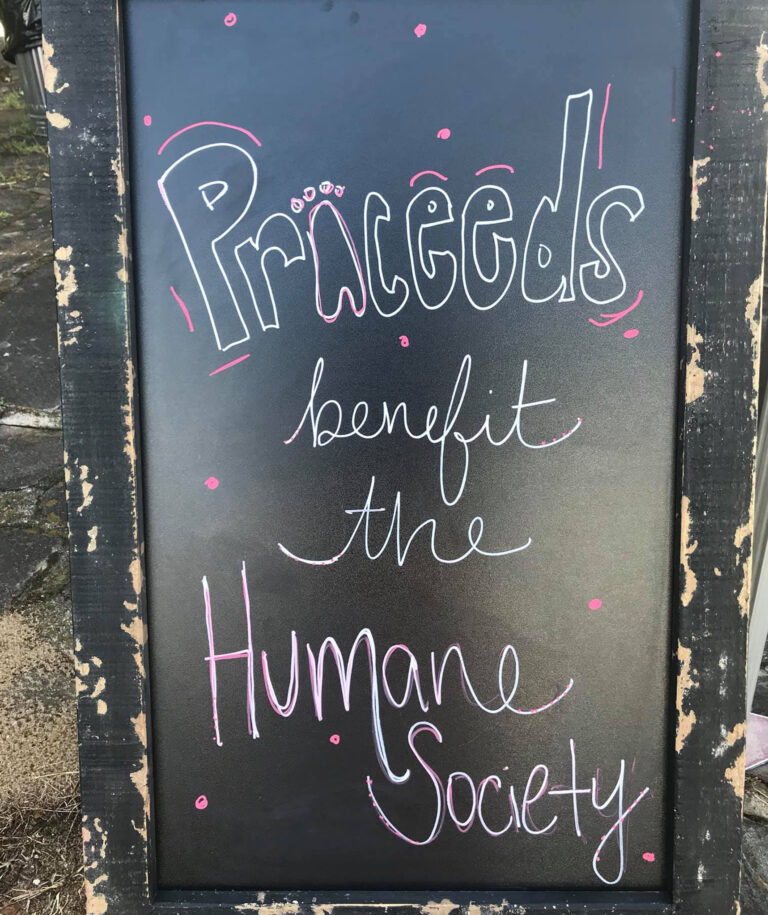 Proceeds
benefit
the
Humane
Society